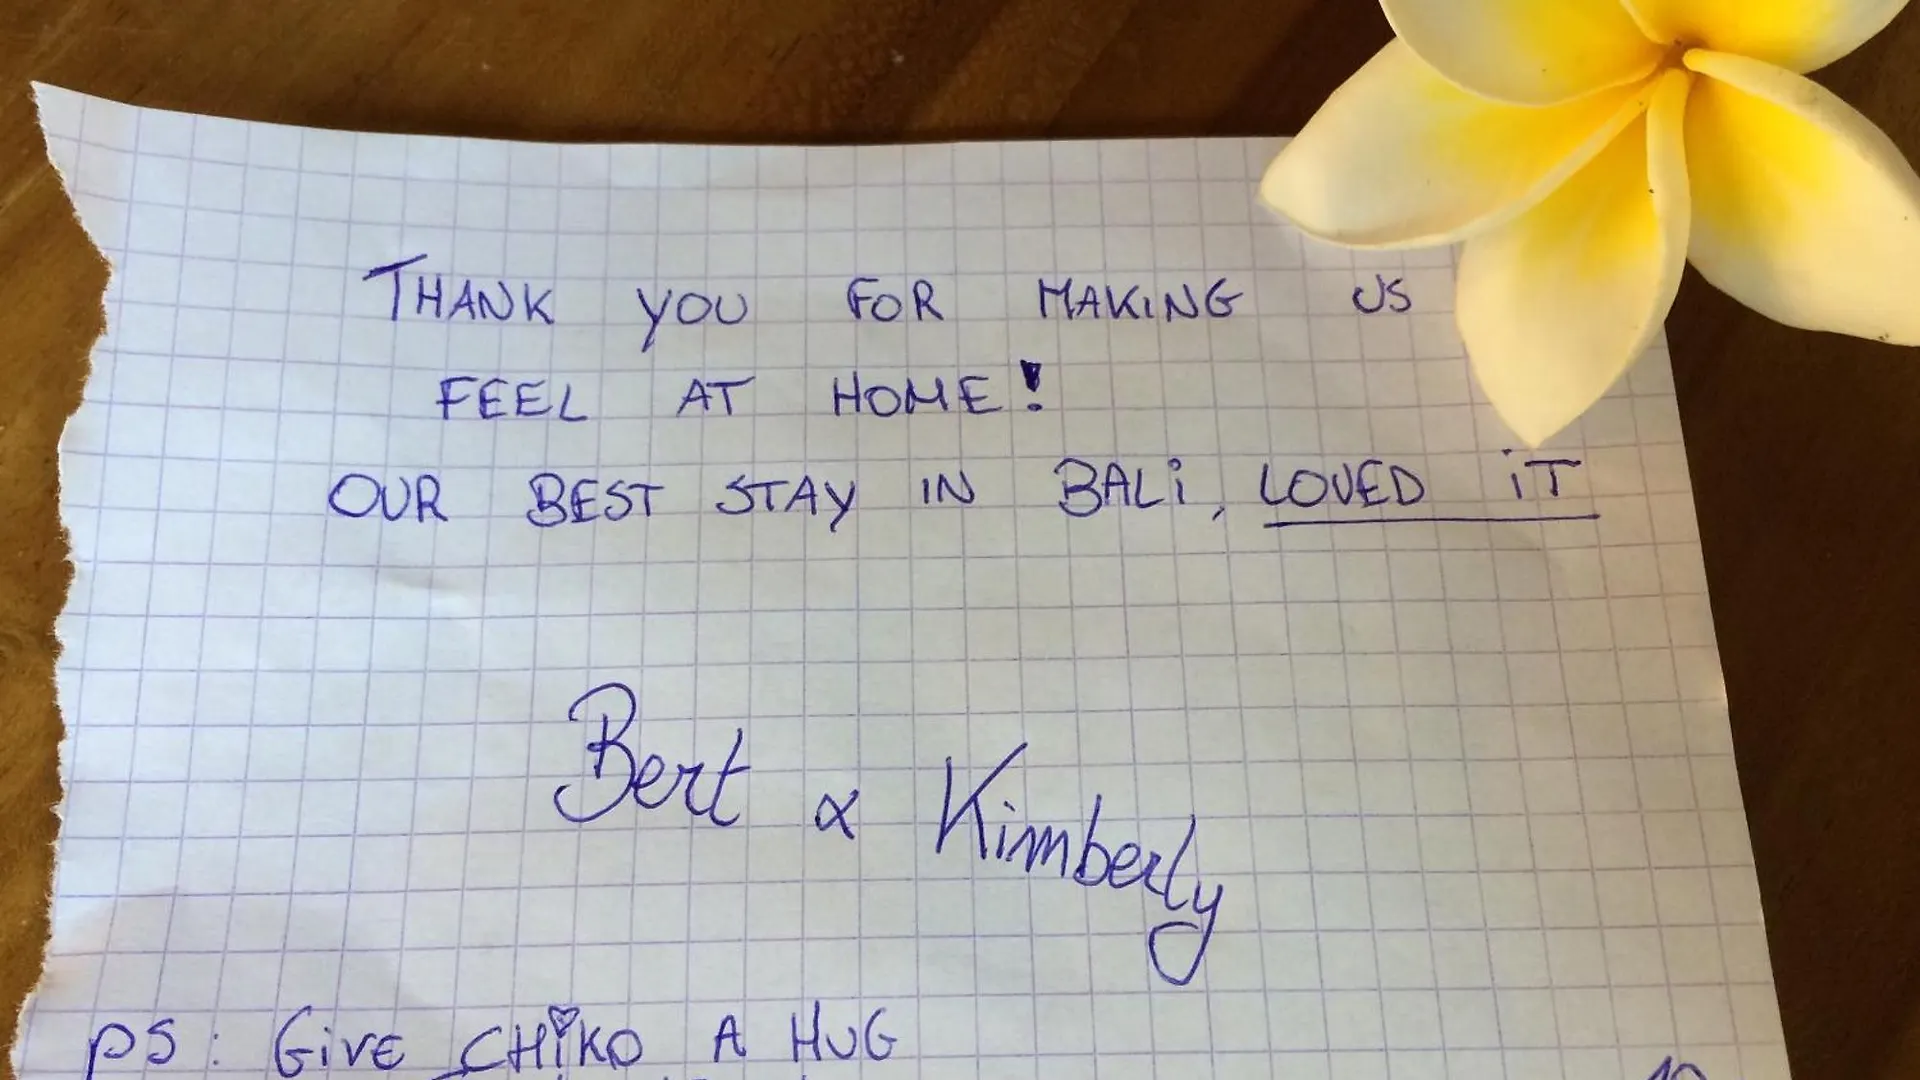 THANK YOU FOR MAKING US
FEEL AT HOME!
OUR BEST STAY IN BALi, LOVED iT
Bert & Kimberly
PS: GiVE CHiKO A HUG